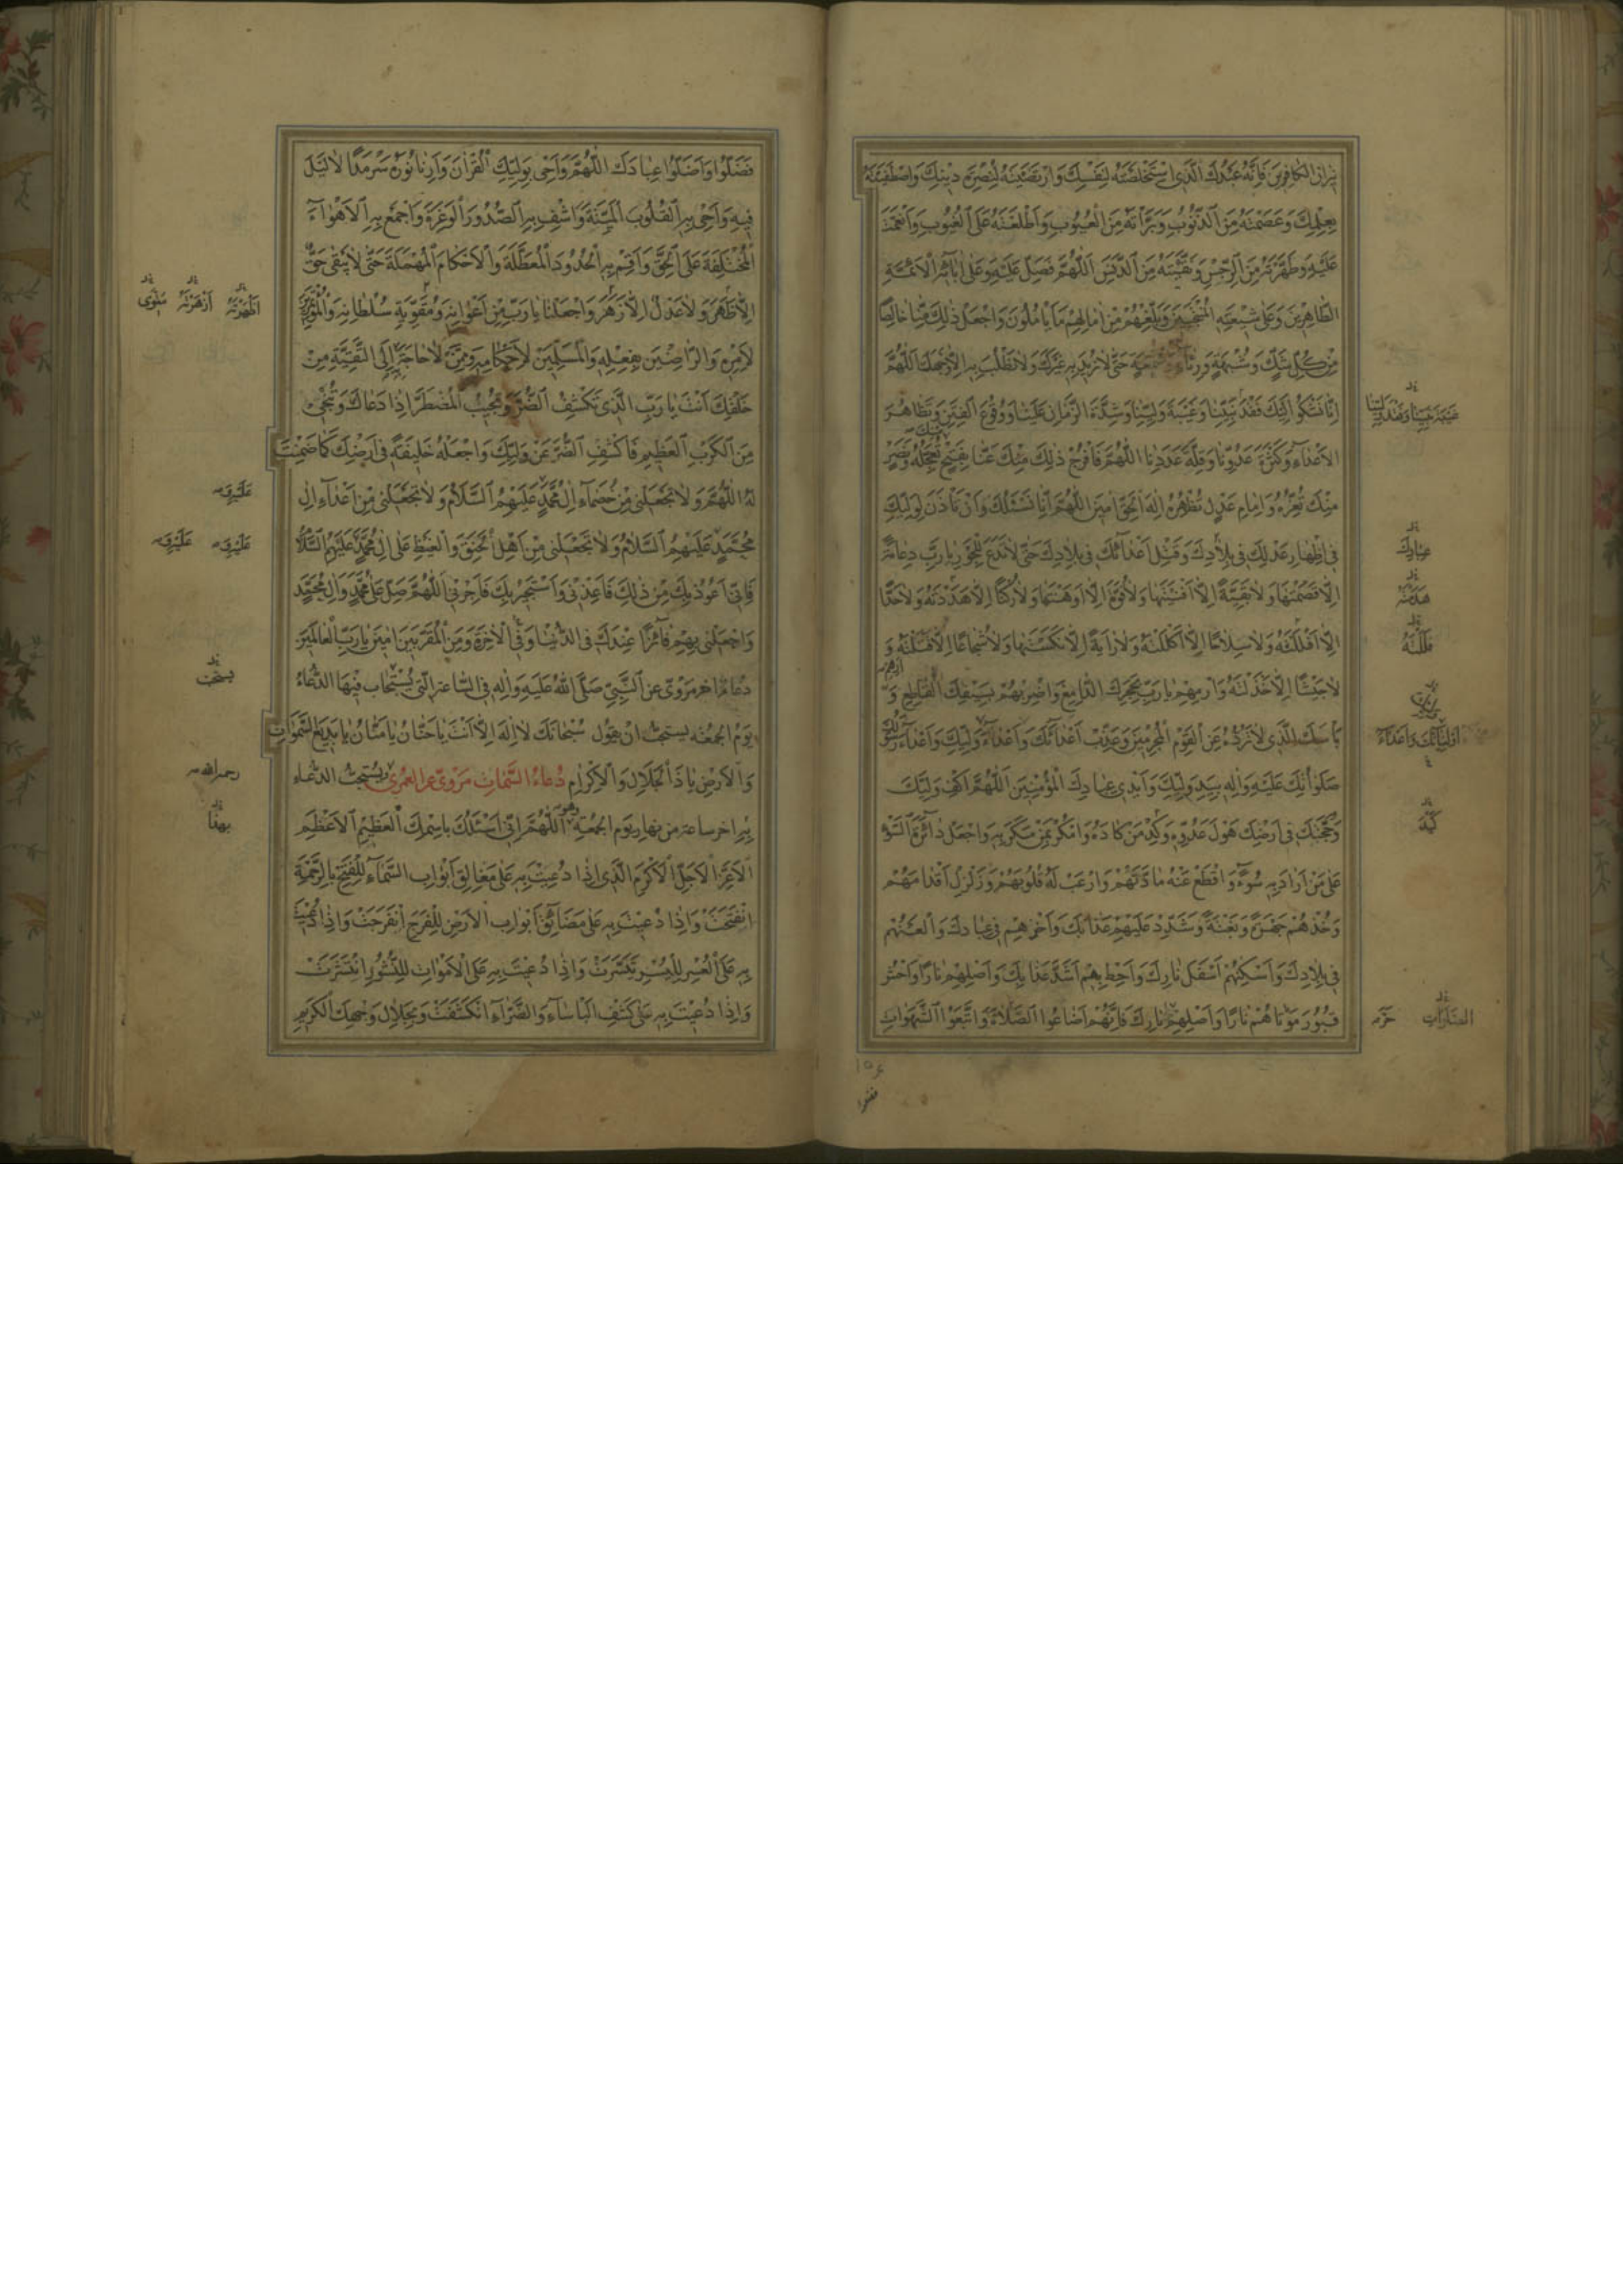 نيران الكافرين فَاِنَّهُ عَبْدُكَ الَّذِى اسْتَخْلَصْتَهُ لِنَفْسِكَ وَارْتَضَيْتَهُ لِنُصْرَةِ دِينِكَ وَاصْطَفَيْتَهُ
بِعِلْمِكَ وَعَصَمْتَهُ مِنَ الذُّنُوبِ وَبَرَّأْتَهُ مِنَ الْعُيُوبِ وَاَطْلَعْتَهُ عَلَى الْغُيُوبِ وَاَنْعَمْتَ
عَلَيْهِ وَطَهَّرْتَهُ مِنَ الرِّجْسِ وَنَقَّيْتَهُ مِنَ الدَّنَسِ اَللّٰهُمَّ فَصَلِّ عَلَيْهِ وَعَلٰى اٰبَائِهِ الْاَئِمَّةِ
الطَّاهِرِينَ وَعَلٰى شِيعَتِهِ الْمُنْتَجَبِينَ وَبَلِّغْهُمْ مِنْ اٰمَالِهِمْ مَا يَأْمُلُونَ وَاجْعَلْ ذٰلِكَ مِنَّا خَالِصًا
مِنْ كُلِّ شَكٍّ وَشُبْهَةٍ وَرِئَاءٍ وَسُمْعَةٍ حَتّٰى لَا نُرِيدَ بِهِ غَيْرَكَ وَلَا نَطْلُبَ بِهِ اِلَّا وَجْهَكَ اَللّٰهُمَّ
اِنَّا نَشْكُوا اِلَيْكَ فَقْدَ نَبِيِّنَا وَغَيْبَةَ وَلِيِّنَا وَشِدَّةَ الزَّمَانِ عَلَيْنَا وَوُقُوعَ الْفِتَنِ وَتَظَاهُرَ
الْاَعْدَاءِ وَكَثْرَةَ عَدُوِّنَا وَقِلَّةَ عَدَدِنَا اَللّٰهُمَّ فَافْرُجْ ذٰلِكَ مِنْكَ عَنَّا بِفَتْحٍ تُعَجِّلُهُ وَنَصْرٍ
مِنْكَ تُعِزُّهُ وَاِمَامِ عَدْلٍ تُظْهِرُهُ اِلٰهَ الْحَقِّ اٰمِينَ اَللّٰهُمَّ اِنَّا نَسْئَلُكَ اَنْ تَأْذَنَ لِوَلِيِّكَ
فِى اِظْهَارِ عَدْلِكَ فِى بِلَادِكَ وَقَتْلِ اَعْدَائِكَ فِى بِلَادِكَ حَتّٰى لَا تَدَعَ لِلْجَوْرِ يَا رَبِّ دِعَامَةً
اِلَّا قَصَمْتَهَا وَلَا بَقِيَّةً اِلَّا اَفْنَيْتَهَا وَلَا قُوَّةً اِلَّا اَوْهَنْتَهَا وَلَا رُكْنًا اِلَّا هَدَدْتَهُ وَلَا حَدًّا
اِلَّا اَفْلَلْتَهُ وَلَا سِلَاحًا اِلَّا اَكْلَلْتَهُ وَلَا رَايَةً اِلَّا نَكَّسْتَهَا وَلَا شُجَاعًا اِلَّا قَتَلْتَهُ وَ
لَا جَيْشًا اِلَّا خَذَلْتَهُ وَارْمِهِمْ يَا رَبِّ بِحَجَرِكَ الدَّامِغِ وَاضْرِبْهُمْ بِسَيْفِكَ الْقَاطِعِ وَ
بَأْسِكَ الَّذِى لَا تَرُدُّهُ عَنِ الْقَوْمِ الْمُجْرِمِينَ وَعَذِّبْ اَعْدَائَكَ وَاَعْدَاءَ وَلِيِّكَ وَاَعْدَاءَ رَسُولِكَ
صَلَوَاتُكَ عَلَيْهِ وَاٰلِهِ بِيَدِ وَلِيِّكَ وَاَيْدِى عِبَادِكَ الْمُؤْمِنِينَ اَللّٰهُمَّ اكْفِ وَلِيَّكَ
وَحُجَّتَكَ فِى اَرْضِكَ هَوْلَ عَدُوِّهِ وَكِدْ مَنْ كَادَهُ وَامْكُرْ بِمَنْ مَكَرَ بِهِ وَاجْعَلْ دَائِرَةَ السَّوْءِ
عَلٰى مَنْ اَرَادَ بِهِ سُوءًا وَاقْطَعْ عَنْهُ مَادَّتَهُمْ وَارْعَبْ لَهُ قُلُوبَهُمْ وَزَلْزِلْ اَقْدَامَهُمْ
وَخُذْهُمْ جَهْرَةً وَبَغْتَةً وَشَدِّدْ عَلَيْهِمْ عَذَابَكَ وَاَخْزِهِمْ فِى عِبَادِكَ وَالْعَنْهُمْ
فِى بِلَادِكَ وَاَسْكِنْهُمْ اَسْفَلَ نَارِكَ وَاَحِطْ بِهِمْ اَشَدَّ عَذَابِكَ وَاَصْلِهِمْ نَارًا وَاحْشُ
قُبُورَ مَوْتَاهُمْ نَارًا وَاَصْلِهِمْ نَارَكَ فَاِنَّهُمْ اَضَاعُوا الصَّلٰوةَ وَاتَّبَعُوا الشَّهَوَاتِ
عِبَادِكَ
هَدَمْتَهُ
فَلَلْتَهُ
كَيْدَ
فَضَلُّوا وَاَضَلُّوا عِبَادَكَ اَللّٰهُمَّ وَاَحْىِ بِوَلِيِّكَ الْقُرْاٰنَ وَاَرِنَا نُورَهُ سَرْمَدًا لَا لَيْلَ
فِيهِ وَاَحْىِ بِهِ الْقُلُوبَ الْمَيِّتَةَ وَاشْفِ بِهِ الصُّدُورَ الْوَغِرَةَ وَاجْمَعْ بِهِ الْاَهْوَاءَ
الْمُخْتَلِفَةَ عَلَى الْحَقِّ وَاَقِمْ بِهِ الْحُدُودَ الْمُعَطَّلَةَ وَالْاَحْكَامَ الْمُهْمَلَةَ حَتّٰى لَا يَبْقٰى حَقٌّ
اِلَّا ظَهَرَ وَلَا عَدْلٌ اِلَّا زَهَرَ وَاجْعَلْنَا يَا رَبِّ مِنْ اَعْوَانِهِ وَمُقَوِّيَةِ سُلْطَانِهِ وَالْمُؤْتَمِرِينَ
لِاَمْرِهِ وَالرَّاضِينَ بِفِعْلِهِ وَالْمُسَلِّمِينَ لِاَحْكَامِهِ وَمِمَّنْ لَا حَاجَةَ بِهِ اِلَى التَّقِيَّةِ مِنْ
خَلْقِكَ اَنْتَ يَا رَبِّ الَّذِى تَكْشِفُ الضُّرَّ وَتُجِيبُ الْمُضْطَرَّ اِذَا دَعَاكَ وَتُنْجِى
مِنَ الْكَرْبِ الْعَظِيمِ فَاكْشِفِ الضُّرَّ عَنْ وَلِيِّكَ وَاجْعَلْهُ خَلِيفَةً فِى اَرْضِكَ كَمَا ضَمِنْتَ
لَهُ اَللّٰهُمَّ وَلَا تَجْعَلْنِى مِنْ خُصَمَاءِ اٰلِ مُحَمَّدٍ عَلَيْهِمُ السَّلَامُ وَلَا تَجْعَلْنِى مِنْ اَعْدَاءِ اٰلِ
مُحَمَّدٍ عَلَيْهِمُ السَّلَامُ وَلَا تَجْعَلْنِى مِنْ اَهْلِ الْحَنَقِ وَالْغَيْظِ عَلٰى اٰلِ مُحَمَّدٍ عَلَيْهِمُ السَّلَامُ
فَاِنِّى اَعُوذُ بِكَ مِنْ ذٰلِكَ فَاَعِذْنِى وَاَسْتَجِيرُ بِكَ فَاَجِرْنِى اَللّٰهُمَّ صَلِّ عَلٰى مُحَمَّدٍ وَاٰلِ مُحَمَّدٍ
وَاجْعَلْنِى بِهِمْ فَائِزًا عِنْدَكَ فِى الدُّنْيَا وَفِى الْاٰخِرَةِ وَمِنَ الْمُقَرَّبِينَ اٰمِينَ يَا رَبَّ الْعَالَمِينَ
دعاء اخر مروىّ عن النَّبِىِّ صَلَّى اللهُ عَلَيْهِ وَاٰلِهِ فِى السَّاعَةِ الَّتِى يُسْتَجَابُ فِيهَا الدُّعَاءُ
يَوْمَ الجُمُعَةِ يستحبّ ان يقول سُبْحَانَكَ لَا اِلٰهَ اِلَّا اَنْتَ يَا حَنَّانُ يَا مَنَّانُ يَا بَدِيعَ السَّمٰوَاتِ
وَالْاَرْضِ يَا ذَا الْجَلَالِ وَالْاِكْرَامِ دُعَاءُ السَّمَاتِ مَرْوِىّ عَنِ الْعَمْرِى يُسْتَحَبُّ الدُّعَاء
بِهِ اخر ساعة من نهار يوم الجمعة وهو اَللّٰهُمَّ اِنِّى اَسْئَلُكَ بِاسْمِكَ الْعَظِيمِ الْاَعْظَمِ
الْاَعَزِّ الْاَجَلِّ الْاَكْرَمِ الَّذِى اِذَا دُعِيتَ بِهِ عَلٰى مَغَالِقِ اَبْوَابِ السَّمَاءِ لِلْفَتْحِ بِالرَّحْمَةِ
انْفَتَحَتْ وَاِذَا دُعِيتَ بِهِ عَلٰى مَضَائِقِ اَبْوَابِ الْاَرْضِ لِلْفَرَجِ انْفَرَجَتْ وَاِذَا دُعِيتَ
بِهِ عَلَى الْعُسْرِ لِلْيُسْرِ تَيَسَّرَتْ وَاِذَا دُعِيتَ بِهِ عَلَى الْاَمْوَاتِ لِلنُّشُورِ انْتَشَرَتْ
وَاِذَا دُعِيتَ بِهِ عَلٰى كَشْفِ الْبَأْسَاءِ وَالضَّرَّاءِ انْكَشَفَتْ وَبِجَلَالِ وَجْهِكَ الْكَرِيمِ
رحمه الله
بهذا